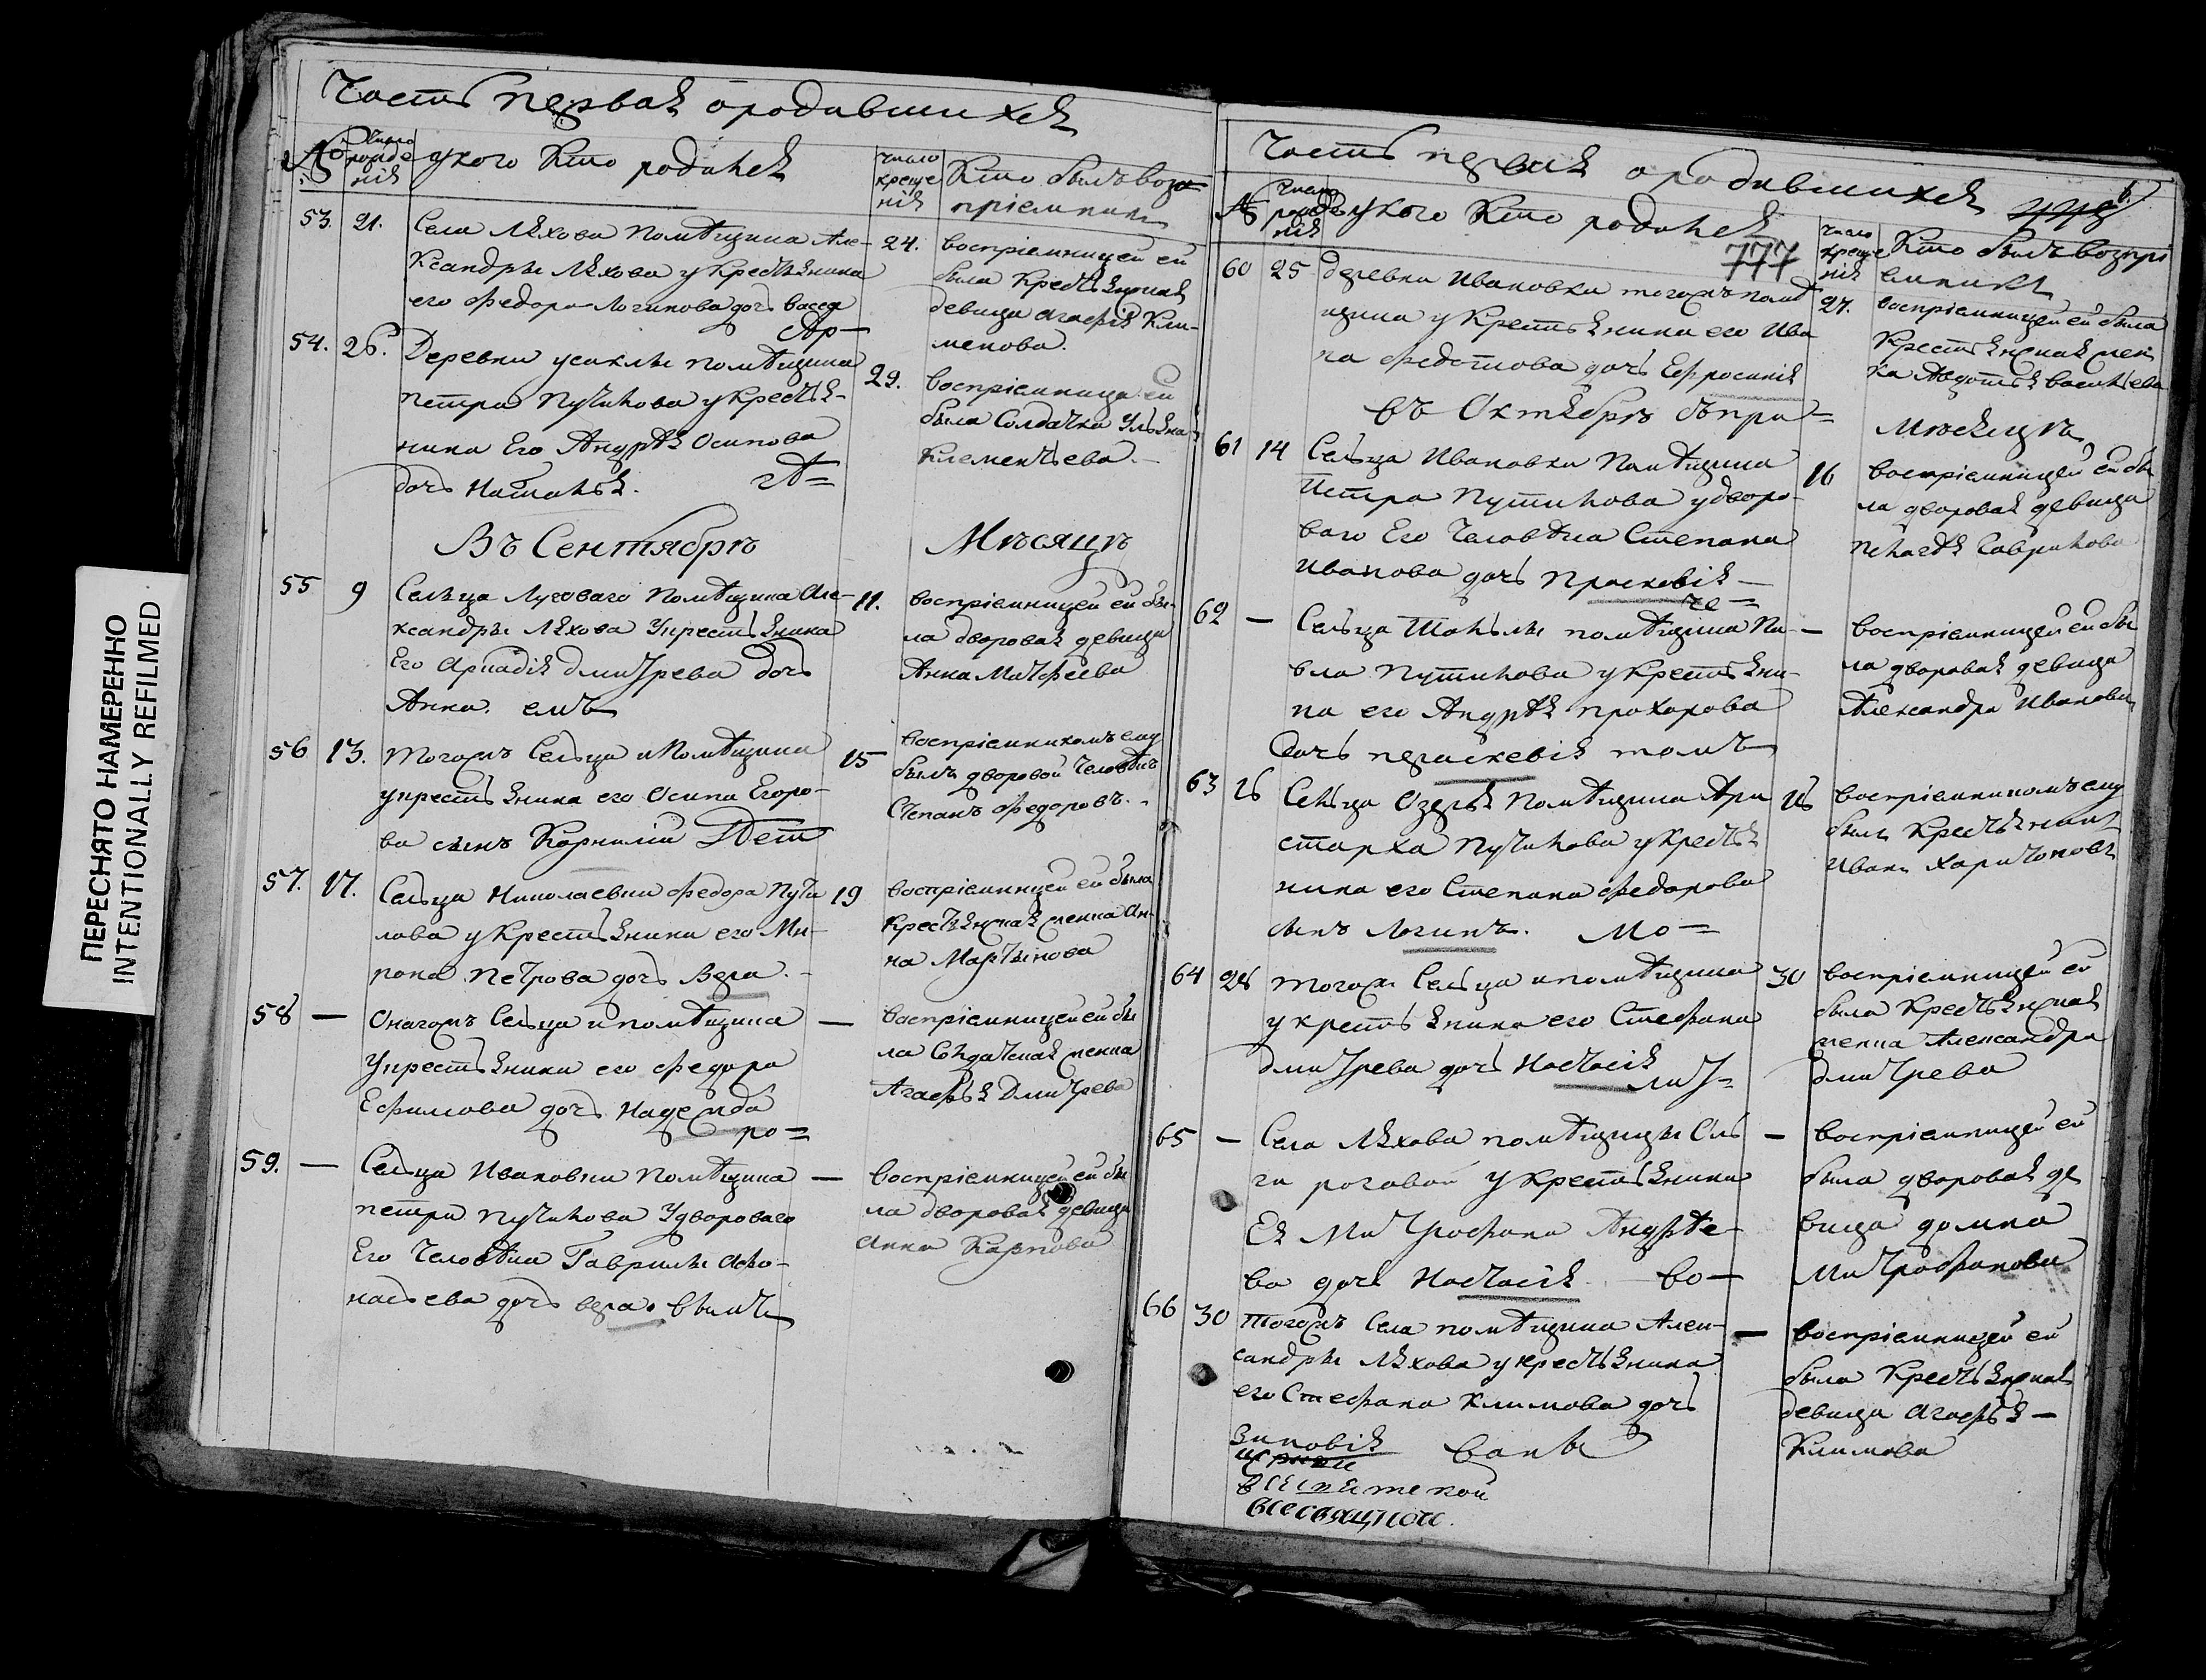 ПЕРЕСНЯТО НАМЕРЕННО
INTENTIONALLY REFILMED
Часть первая ородившихся
№
Число рожденія
укого Кто родился
число крещенія
Кто былъ воз
пріемником
53. 21.
Села Ляхова Помѣщика Але-
ксандры Ляхова у Крестьянина
его Федора Логинова дочь
24.
воспріемницей ей
была Крестьянская
девица Агафія Кли-
менова.
54. 26.
Деревни помѣщика
петра Путилова у Крестья-
нина Его Андрѣя Осипова
дочь Наталья.
29.
воспріемница ей
была Солдатка Ульяна
Клементьева.
Въ Сентябрѣ Мѣсяцѣ
55 9
Сельца Луговаго Помѣщика Але-
ксандры Ляхова Укрестьянина
Его Аркадія дмитрева дочь
Анна.
11.
воспріемницей ей бы-
ла дворовая девица
Анна Матфеева
56 13.
Тогожъ Сельца и Помѣщика
укрестьянина его Осипа Егоро-
ва сынъ Корнилій
15
воспріемникомъ ему
былъ дворовой Человѣкъ
Степанъ Федоровъ.
57. 17.
Сельца Николаевки Федора Пути
лова у Крестьянина его Ми-
рона Петрова дочь Вера.
19
воспріемницей ей была
Крестьянская женка Ан-
на Мартынова
58 —
Оногожъ Сельца и помѣщика
Укрестьянина его Федора
Ефимова дочь Надежда
—
воспріемницей ей бы
ла Солдатская женка
Агафья Дмитрева
59. —
Сельца Ивановки Помѣщика
петра Путилова Удвороваго
Его Человѣка Гаврилы Афо-
насьева дочь вера.
—
воспріемницей ей бы
ла дворовая девица
Анна Карпова
Часть первая ородившихся
777
№
Число рожденія
укого Кто родился
число крещенія
Кто былъ воспрі
емникъ
60 25
деревни Ивановки тогожъ помѣ
щика у Крестьянина его Ива
на Федотова дочь Ефросинія
27.
воспріемницей ей была
Крестьянская жен
ка Авдотья Васильева
въ Октябрѣ Мѣсяцѣ
61 14
Сельца Ивановки Помѣщика
Петра Путилова удворо-
ваго Его Человѣка Степана
Иванова дочь Прасковія
16
воспріемницей ей бы
ла дворовая девица
Пелагѣя Гаврилова
62 —
Сельца помѣщика Па-
вла Путилова у Крестьяни-
на его Андрѣя Прохорова
дочь параскевія
—
воспріемницей ей бы
ла дворовая девица
Александра Иванова
63 26
Сельца Помѣщика Ари
старха Путилова у Крестья
нина его Степана Федорова
сынъ Логинъ.
воспріемникомъ ему
былъ Крестьянинъ
Иванъ Харитоновъ
64 28
тогожъ Сельца и помѣщика
у крестьянина его Стефана
дмитрева дочь Настасія
30
воспріемницей ей
была Крестьянская
женка Александра
дмитрева
65 —
Села Ляхова помѣщицы Оль
ги роговой у Крестьянина
Ея Митрофана Андрѣе-
ва дочь Настасія
—
воспріемницей ей
была дворовая де
вица домна
Митрофанова
66 30
Тогожъ Села помѣщика Алек-
сандры Ляхова у крестьянина
его Стефана Климова дочь
Зиновія
—
воспріемницей ей
была Крестьянская
девица Агафья
Климова